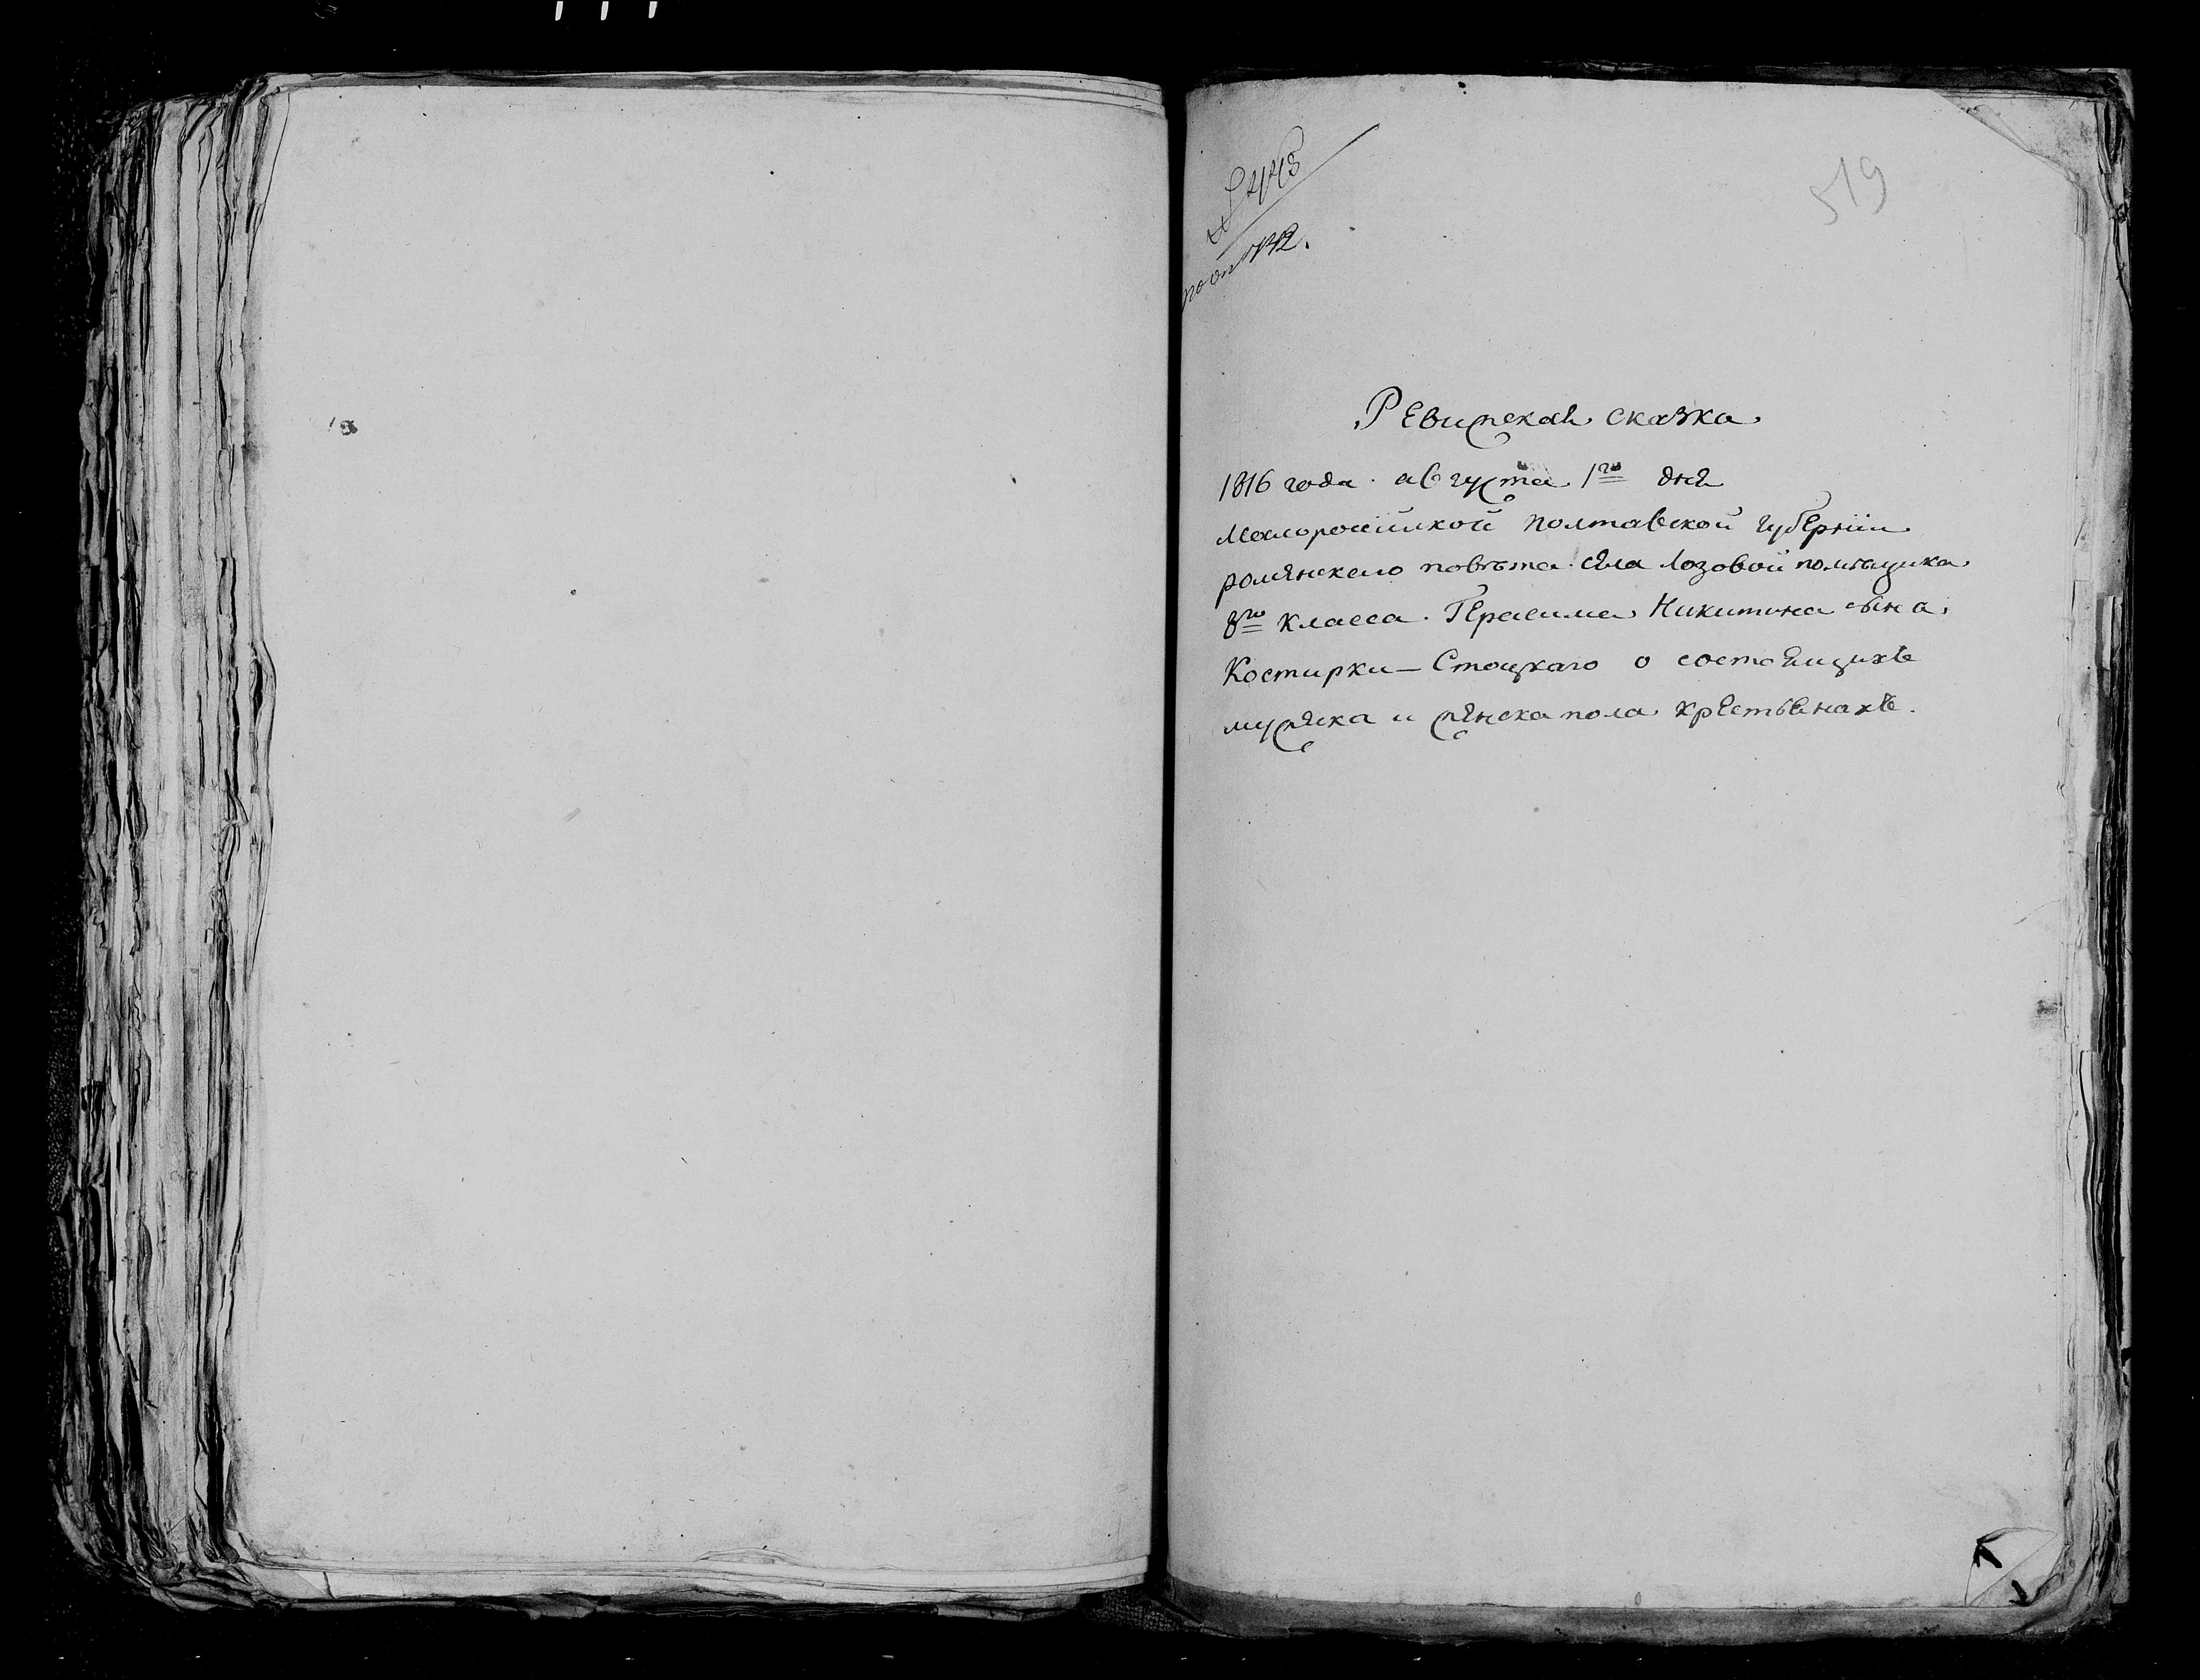 519
Ревизская сказка
1816 года августа 1го дня
Малоросийской Полтавской губернии
роменскаго повѣта села Лозовой помѣщика
8го класса Герасима Никитина сына
Костирки-Стоцкаго о состоящихъ
мужеска и женска пола крестьянахъ.